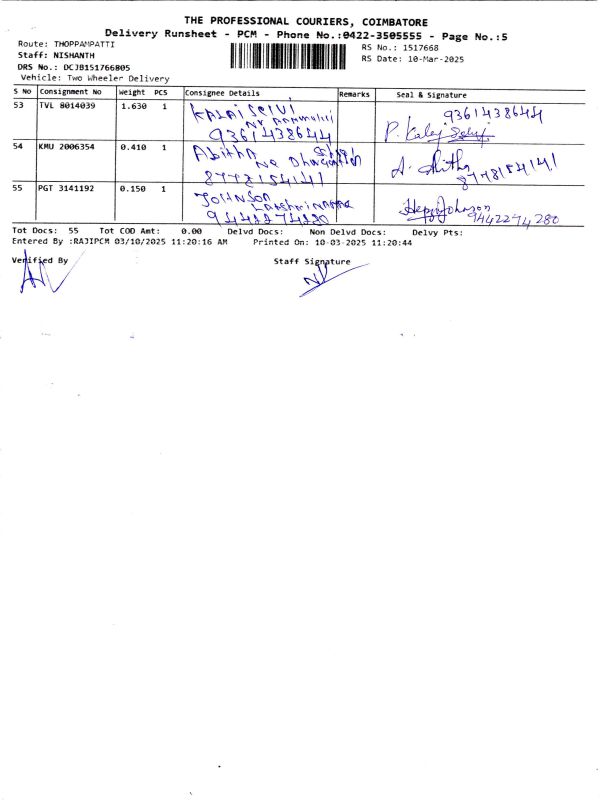 THE PROFESSIONAL COURIERS, COIMBATORE
Delivery Runsheet - PCM - Phone No.:0422-3505555 - Page No.:5
Route: THOPPAMPATTI
Staff: NISHANTH
DRS No.: DCJB151766805
Vehicle: Two Wheeler Delivery
RS No.: 1517668
RS Date: 10-Mar-2025
S No Consignment No Weight PCS Consignee Details Remarks Seal & Signature
53 TVL 8014039 1.630 1 KALAISELVI
9361438644
9361438644
P. Kalai Selvi
54 KMU 2006354 0.410 1 Abitha
8778154141
A. Abitha
8778154141
55 PGT 3141192 0.150 1 JOHNSON
9442274280
Hepzi Johnson
9442274280
Tot Docs: 55 Tot COD Amt: 0.00 Delvd Docs: Non Delvd Docs: Delvy Pts:
Entered By :RAJIPCM 03/10/2025 11:20:16 AM Printed On: 10-03-2025 11:20:44
Verified By Staff Signature